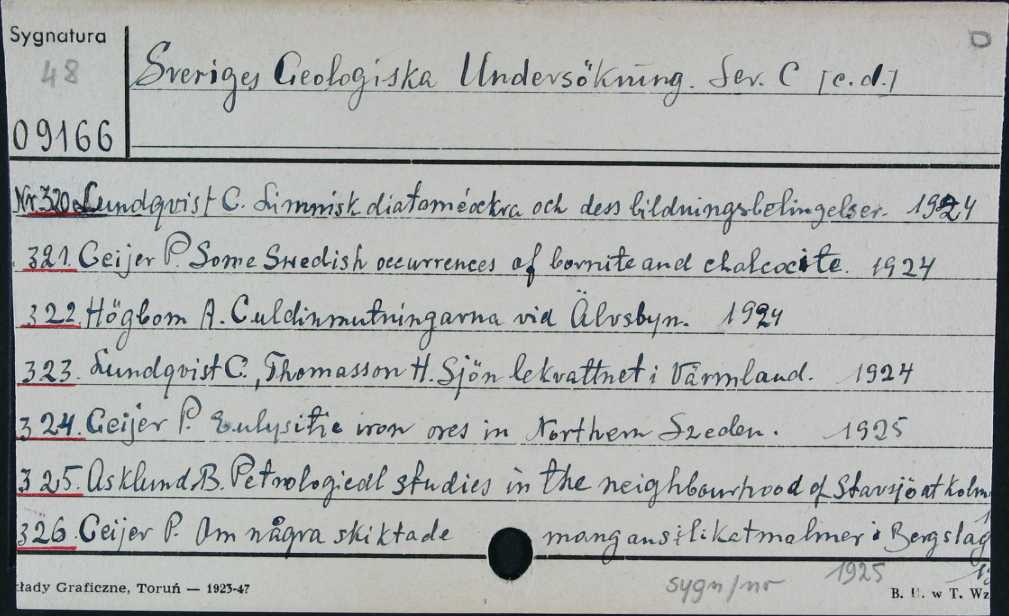 Sygnatura
48
09166
Sveriges Geologiska Undersökning. Ser. C [c.d.]
Nr. 320. Lundqvist C. Limnisk diatoméockra och dess bildningsbetingelser. 1924
321. Geijer P. Some Swedish occurrences of bornite and chalcocite. 1924
322. Högbom A. Culdinmutningarna vid Älvsbyn. 1924
323. Lundqvist C., Thomasson H. Sjön lekvattnet i Värmland. 1924
324. Geijer P. Eulysitic iron ores in Northern Szeden. 1925
325. Asklund B. Petrologicdl studies in the neighbourhood of Stavsjö at Kolm
326. Geijer P. Om några skiktade mangansilikatmalmer i Bergslag
1925
sygn/nr
kłady Graficzne, Toruń — 1923-47
B. U. w T. Wz